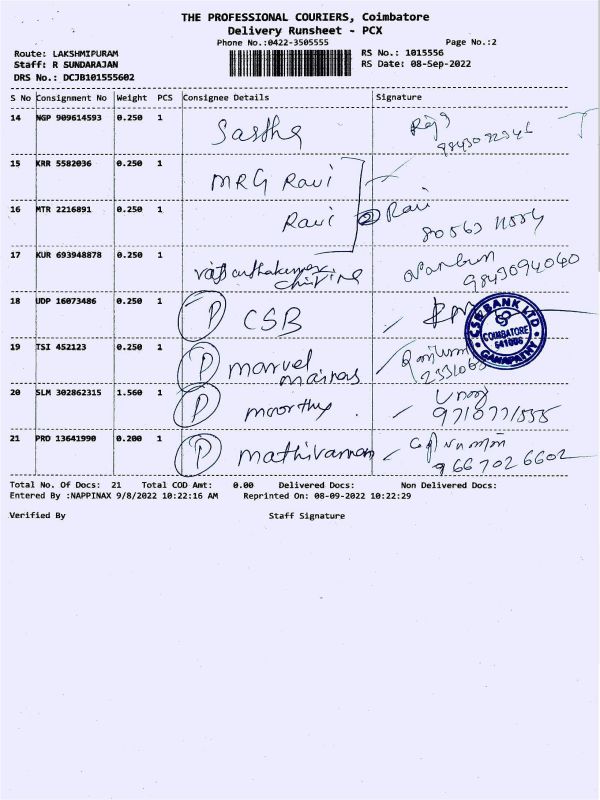 THE PROFESSIONAL COURIERS, Coimbatore
Delivery Runsheet - PCX
Phone No.:0422-3505555 Page No.:2
Route: LAKSHMIPURAM RS No.: 1015556
Staff: R SUNDARAJAN RS Date: 08-Sep-2022
DRS No.: DCJB101555602
S No Consignment No Weight PCS Consignee Details Signature
14 NGP 909614593 0.250 1 Sastha
15 KRR 5582036 0.250 1 MRG Ravi
16 MTR 2216891 0.250 1 Ravi 2 Ravi
80563 11554
17 KUR 693948878 0.250 1
9843094040
18 UDP 16073486 0.250 1 P CSB
CSB BANK LTD
COIMBATORE
641006
GANAPATHY
19 TSI 452123 0.250 1 P marvel
20 SLM 302862315 1.560 1 P moorthy
9710771555
21 PRO 13641990 0.200 1 P mathivanan
966702 6602
Total No. Of Docs: 21 Total COD Amt: 0.00 Delivered Docs: Non Delivered Docs:
Entered By :NAPPINAX 9/8/2022 10:22:16 AM Reprinted On: 08-09-2022 10:22:29
Verified By Staff Signature